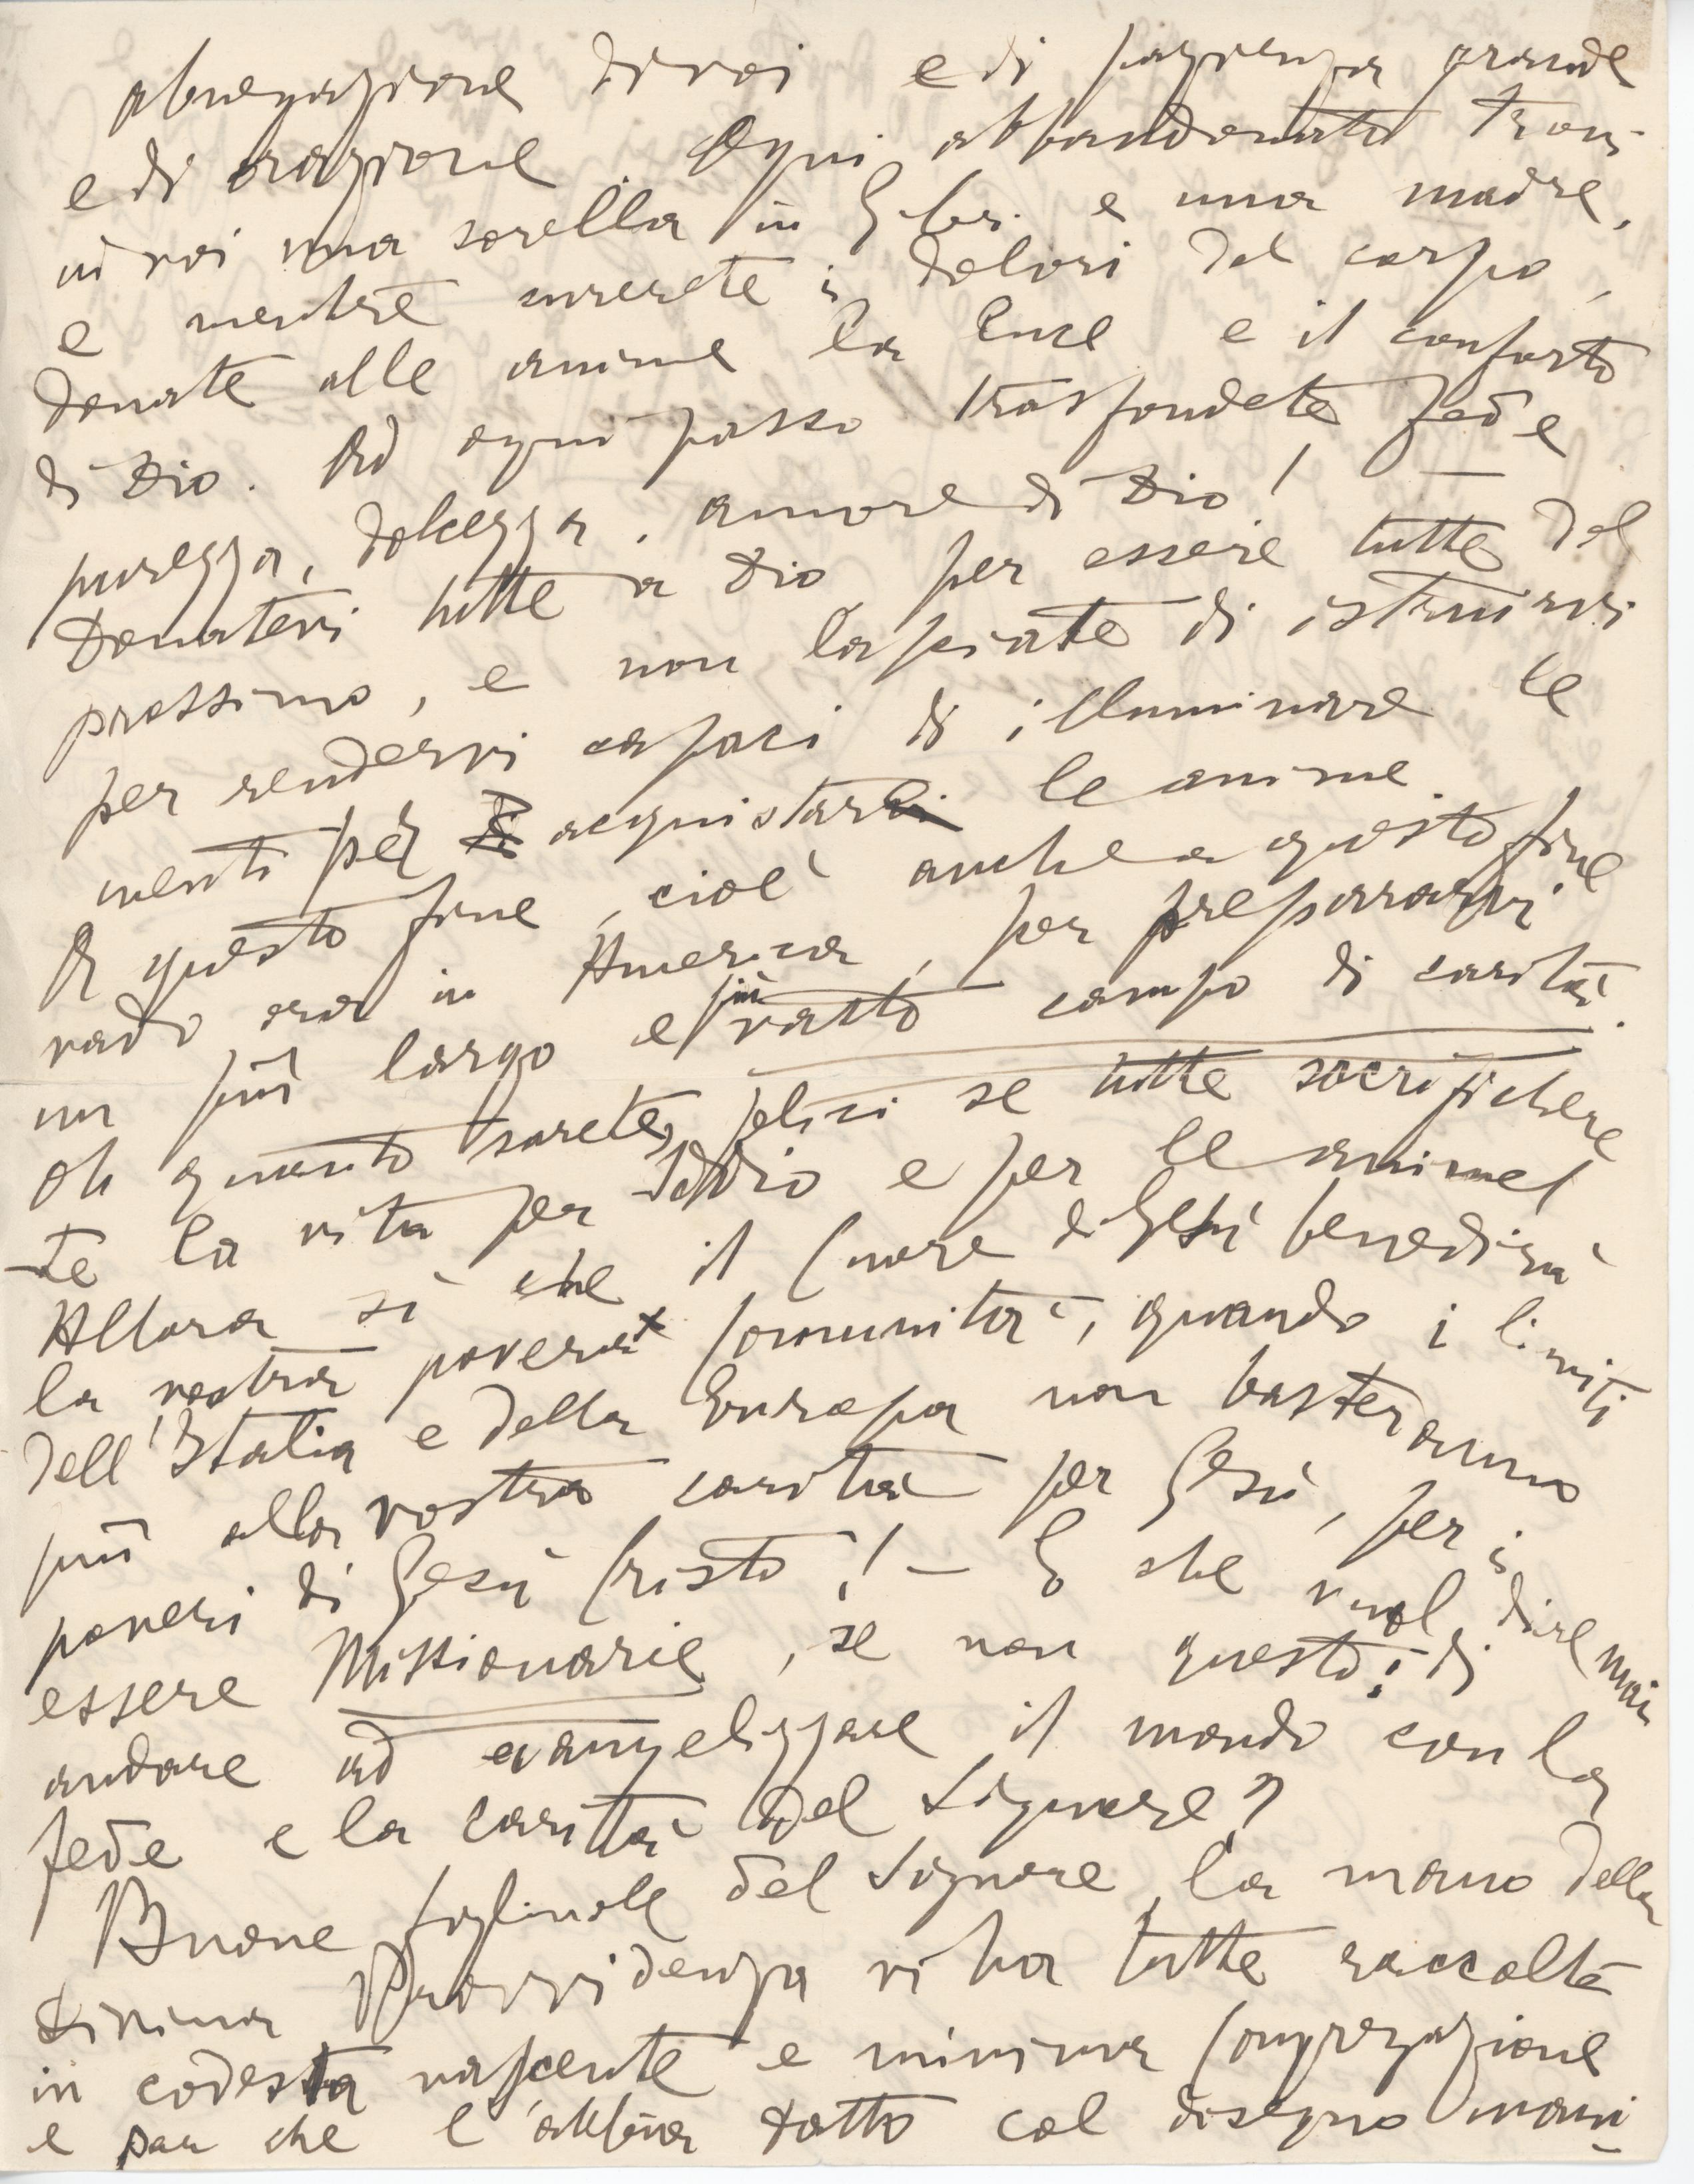 abnegazione di voi e di pazienza grande
e di orazione. Ogni abbandonato trovi
in voi una sorella in G. Cr. e una madre,
e mentre curerete i dolori del corpo,
donate alle anime la luce e il conforto
di Dio. Ad ogni passo trasfondete fede
purezza, dolcezza, amore di Dio! –
Donatevi tutte a Dio per essere tutte del
prossimo, e non lasciate di istruirvi
per rendervi capaci di illuminare le
menti per acquistar le anime.
A questo fine, cioè anche a questo fine
vado ora in America, per prepararvi
un più largo e più vasto campo di carità.
Oh quanto sarete felici se tutte sacrifichere
te la vita per Iddio e per le anime!
Allora sì che il Cuore di Gesù benedirà
la vostra povera Comunità, quando i limiti
dell'Italia e della Europa non basteranno
più alla vostra carità per Gesù, per i
poveri di Gesù Cristo! – E che vuol dire mai
essere Missionarie, se non questo: di
andare ad evangelizzare il mondo con la
fede e la carità del Signore?
Buone figliuole del Signore, la mano della
Divina Provvidenza vi ha tutte raccolte
in codesta nascente e minima Congregazione
e par che l'abbia fatto col disegno mani-